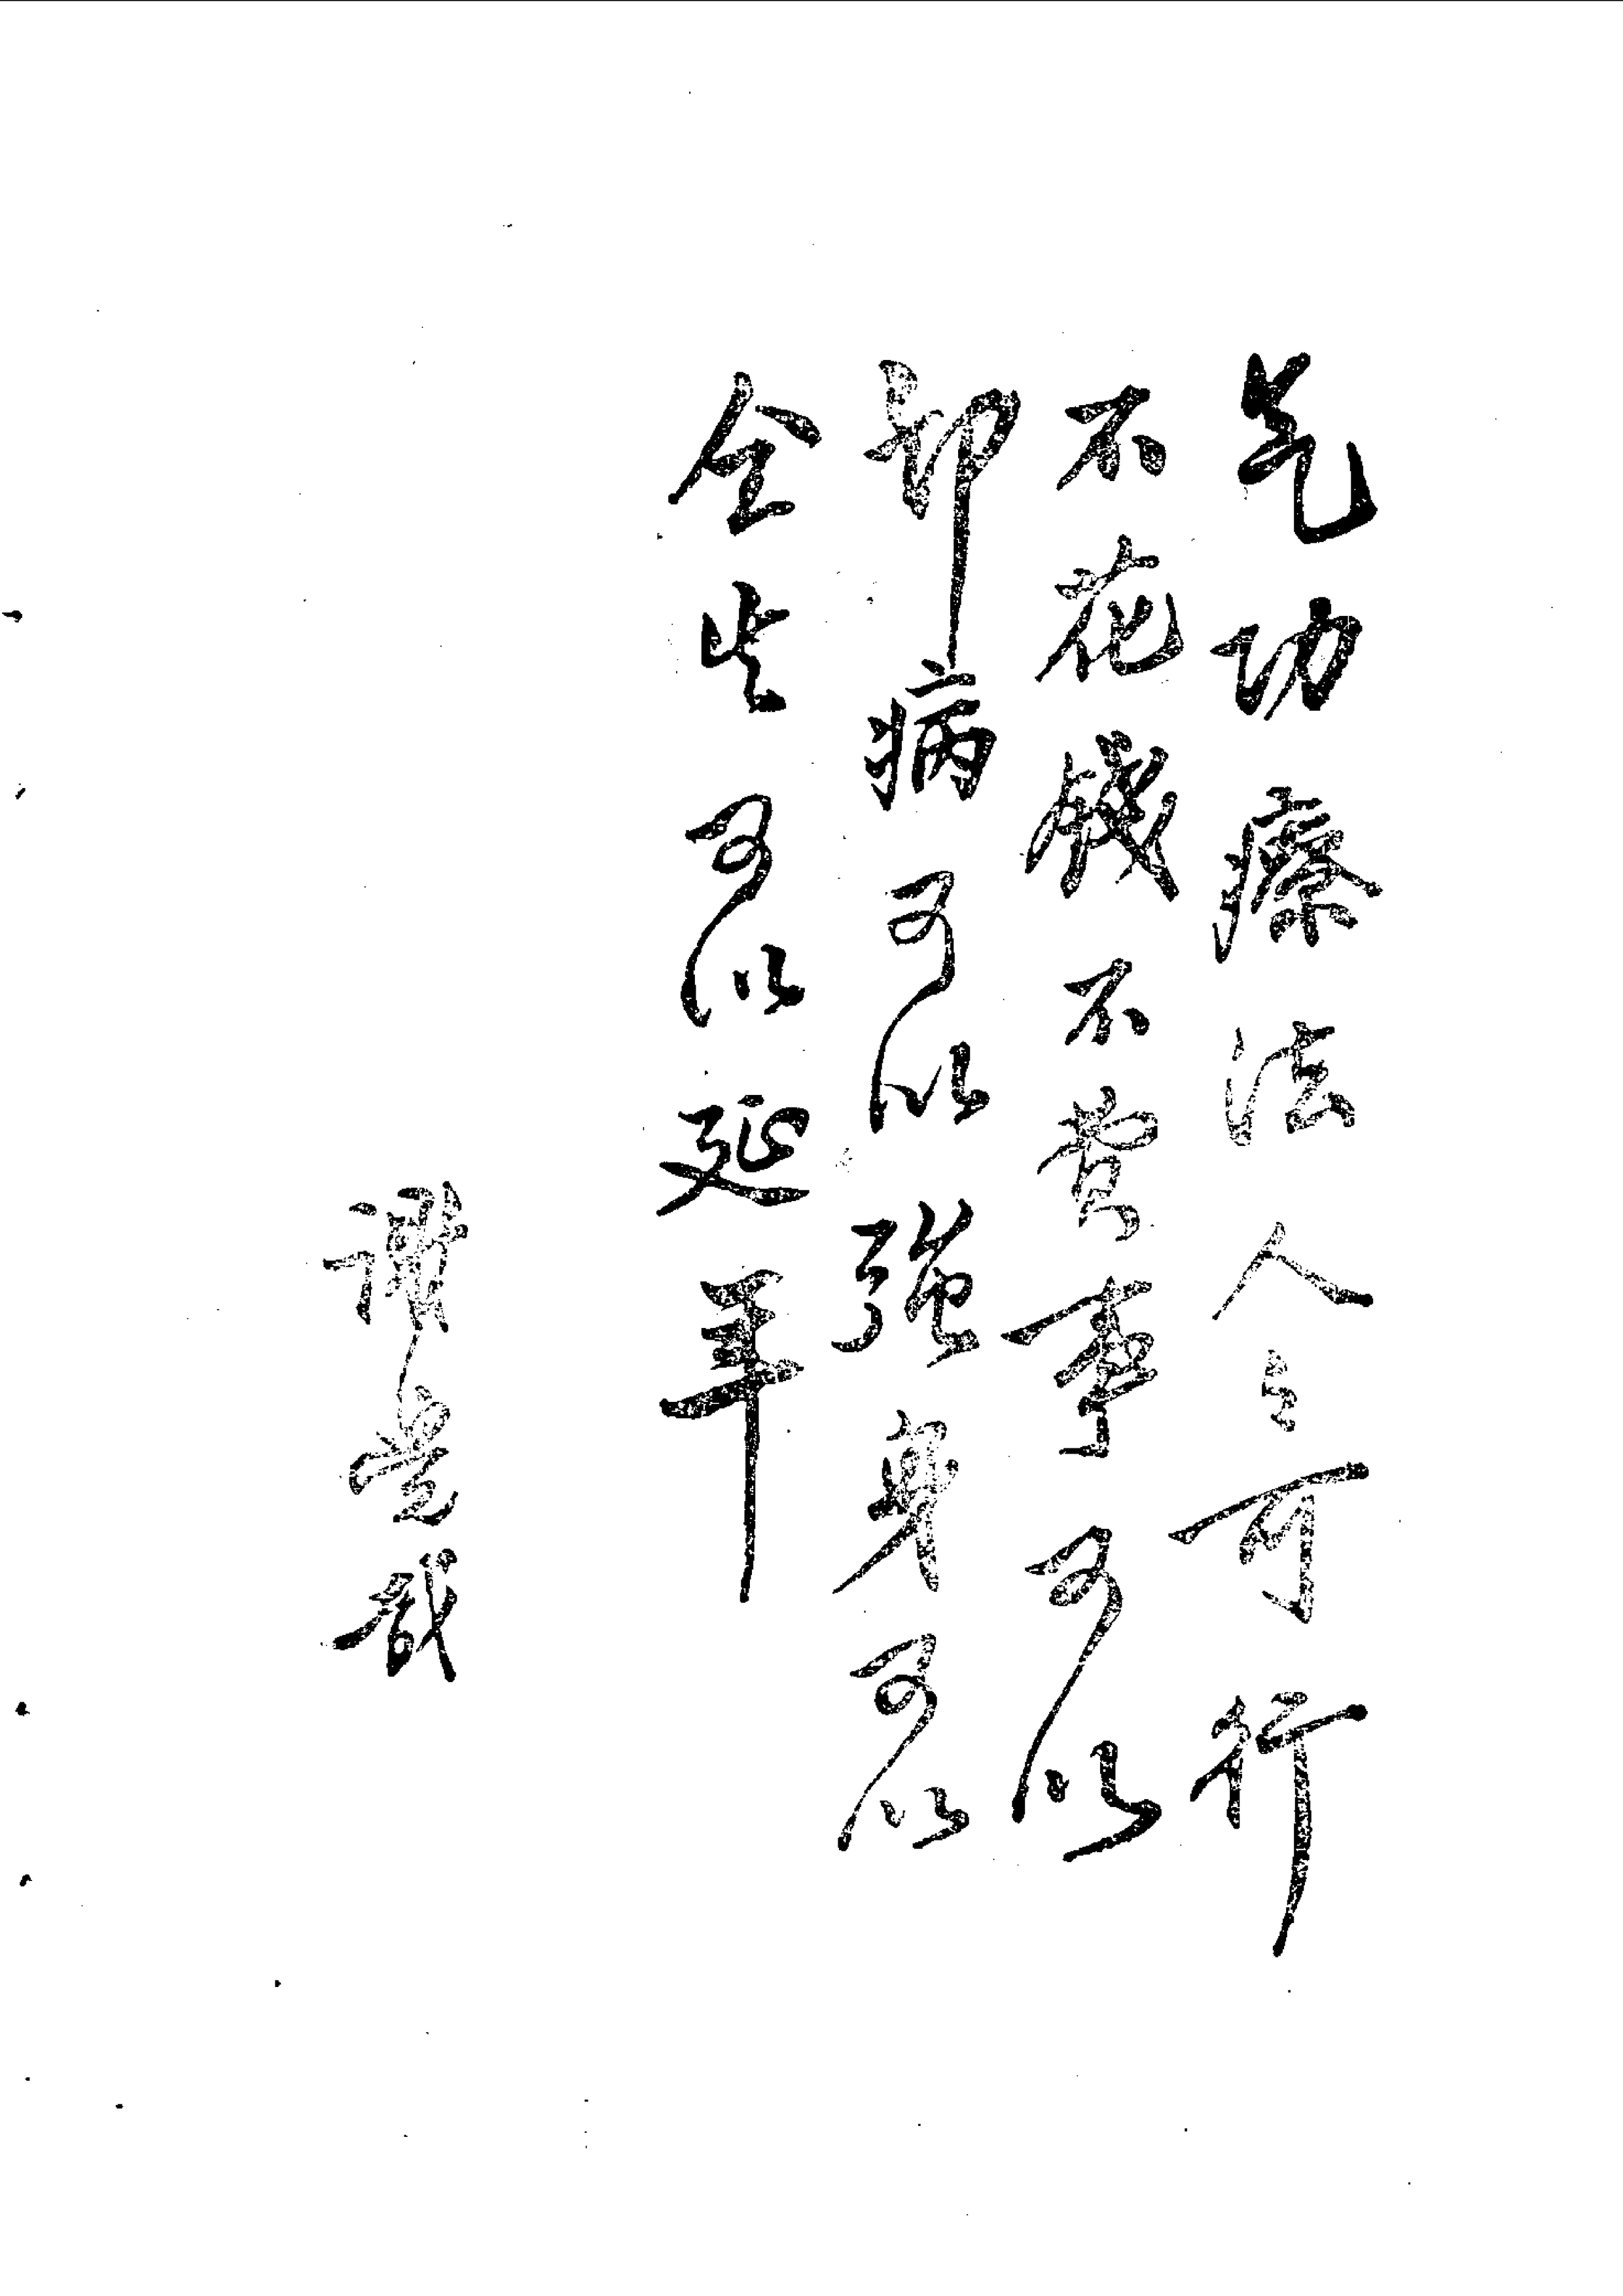 气功療法人人可行
不花錢不費事可以
却病可以強身可以
全生可以延年
謝覺哉